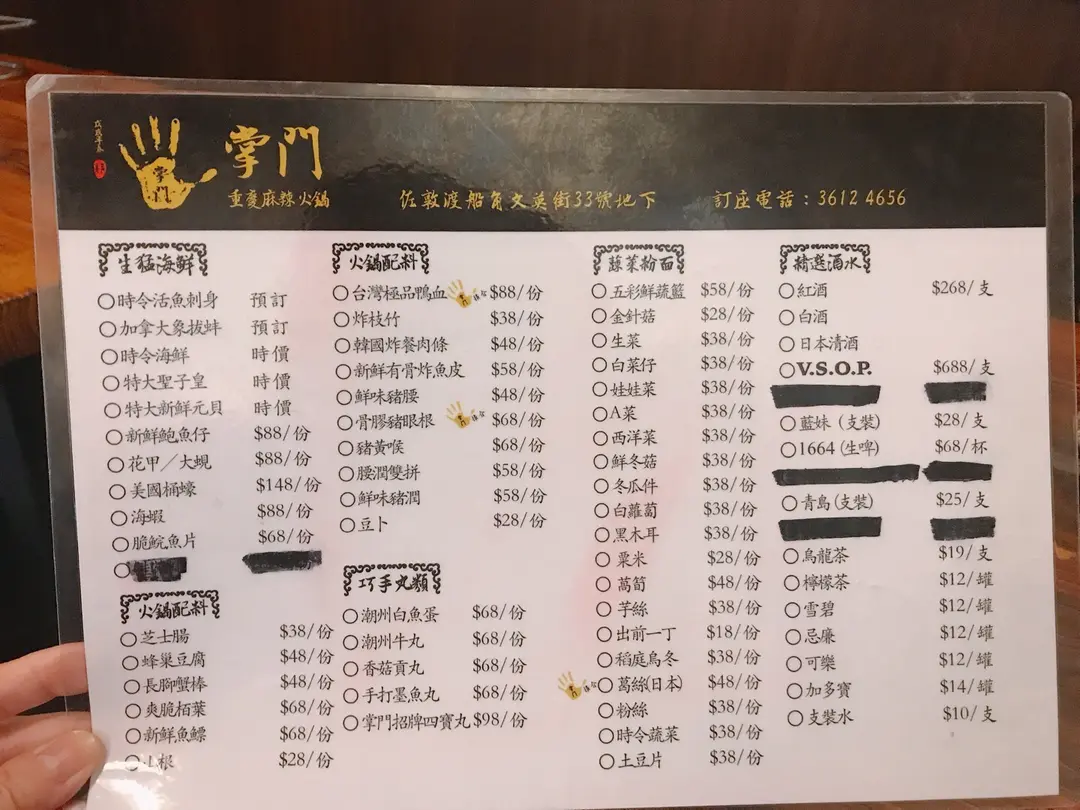 掌門
掌門
重慶麻辣火鍋 佐敦渡船角文英街33號地下 訂座電話：3612 4656
生猛海鮮
時令活魚刺身 預訂
加拿大象拔蚌 預訂
時令海鮮 時價
特大聖子皇 時價
特大新鮮元貝 時價
新鮮鮑魚仔 $88/份
花甲／大蜆 $88/份
美國桶蠔 $148/份
海蝦 $88/份
脆鯇魚片 $68/份
火鍋配料
芝士腸 $38/份
蜂巢豆腐 $48/份
長腳蟹棒 $48/份
爽脆栢葉 $68/份
新鮮魚鰾 $68/份
根 $28/份
火鍋配料
台灣極品鴨血 $88/份
炸枝竹 $38/份
韓國炸餐肉條 $48/份
新鮮有骨炸魚皮 $58/份
鮮味豬腰 $48/份
骨膠豬眼根 $68/份
豬黃喉 $68/份
腰潤雙拼 $58/份
鮮味豬潤 $58/份
豆卜 $28/份
巧手丸類
潮州白魚蛋 $68/份
潮州牛丸 $68/份
香菇貢丸 $68/份
手打墨魚丸 $68/份
掌門招牌四寶丸 $98/份
蔬菜粉面
五彩鮮蔬籃 $58/份
金針菇 $28/份
生菜 $38/份
白菜仔 $38/份
娃娃菜 $38/份
A菜 $38/份
西洋菜 $38/份
鮮冬菇 $38/份
冬瓜件 $38/份
白蘿蔔 $38/份
黑木耳 $38/份
粟米 $28/份
萵筍 $48/份
芋絲 $38/份
出前一丁 $18/份
稻庭烏冬 $38/份
葛絲(日本) $48/份
粉絲 $38/份
時令蔬菜 $38/份
土豆片 $38/份
精選酒水
紅酒 $268/支
白酒
日本清酒
V.S.O.P. $688/支
藍妹（支裝） $28/支
1664 (生啤) $68/杯
青島（支裝） $25/支
烏龍茶 $19/支
檸檬茶 $12/罐
雪碧 $12/罐
忌廉 $12/罐
可樂 $12/罐
加多寶 $14/罐
支裝水 $10/支